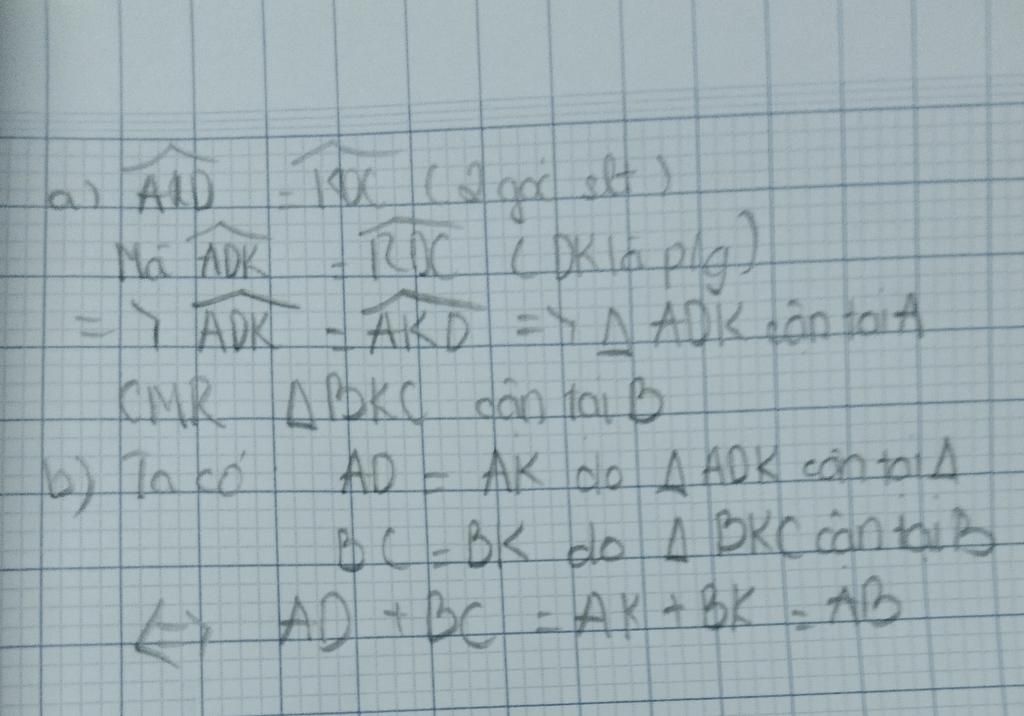 a) AKD = KDC (2 góc slt)
Mà ADK = KDC (DK là p/g)
=> ADK = AKD => Δ ADK cân tại A
CMR Δ BKC cân tại B
b) Ta có AD = AK do Δ ADK cân tại A
BC = BK do Δ BKC cân tại B
<=> AD + BC = AK + BK = AB